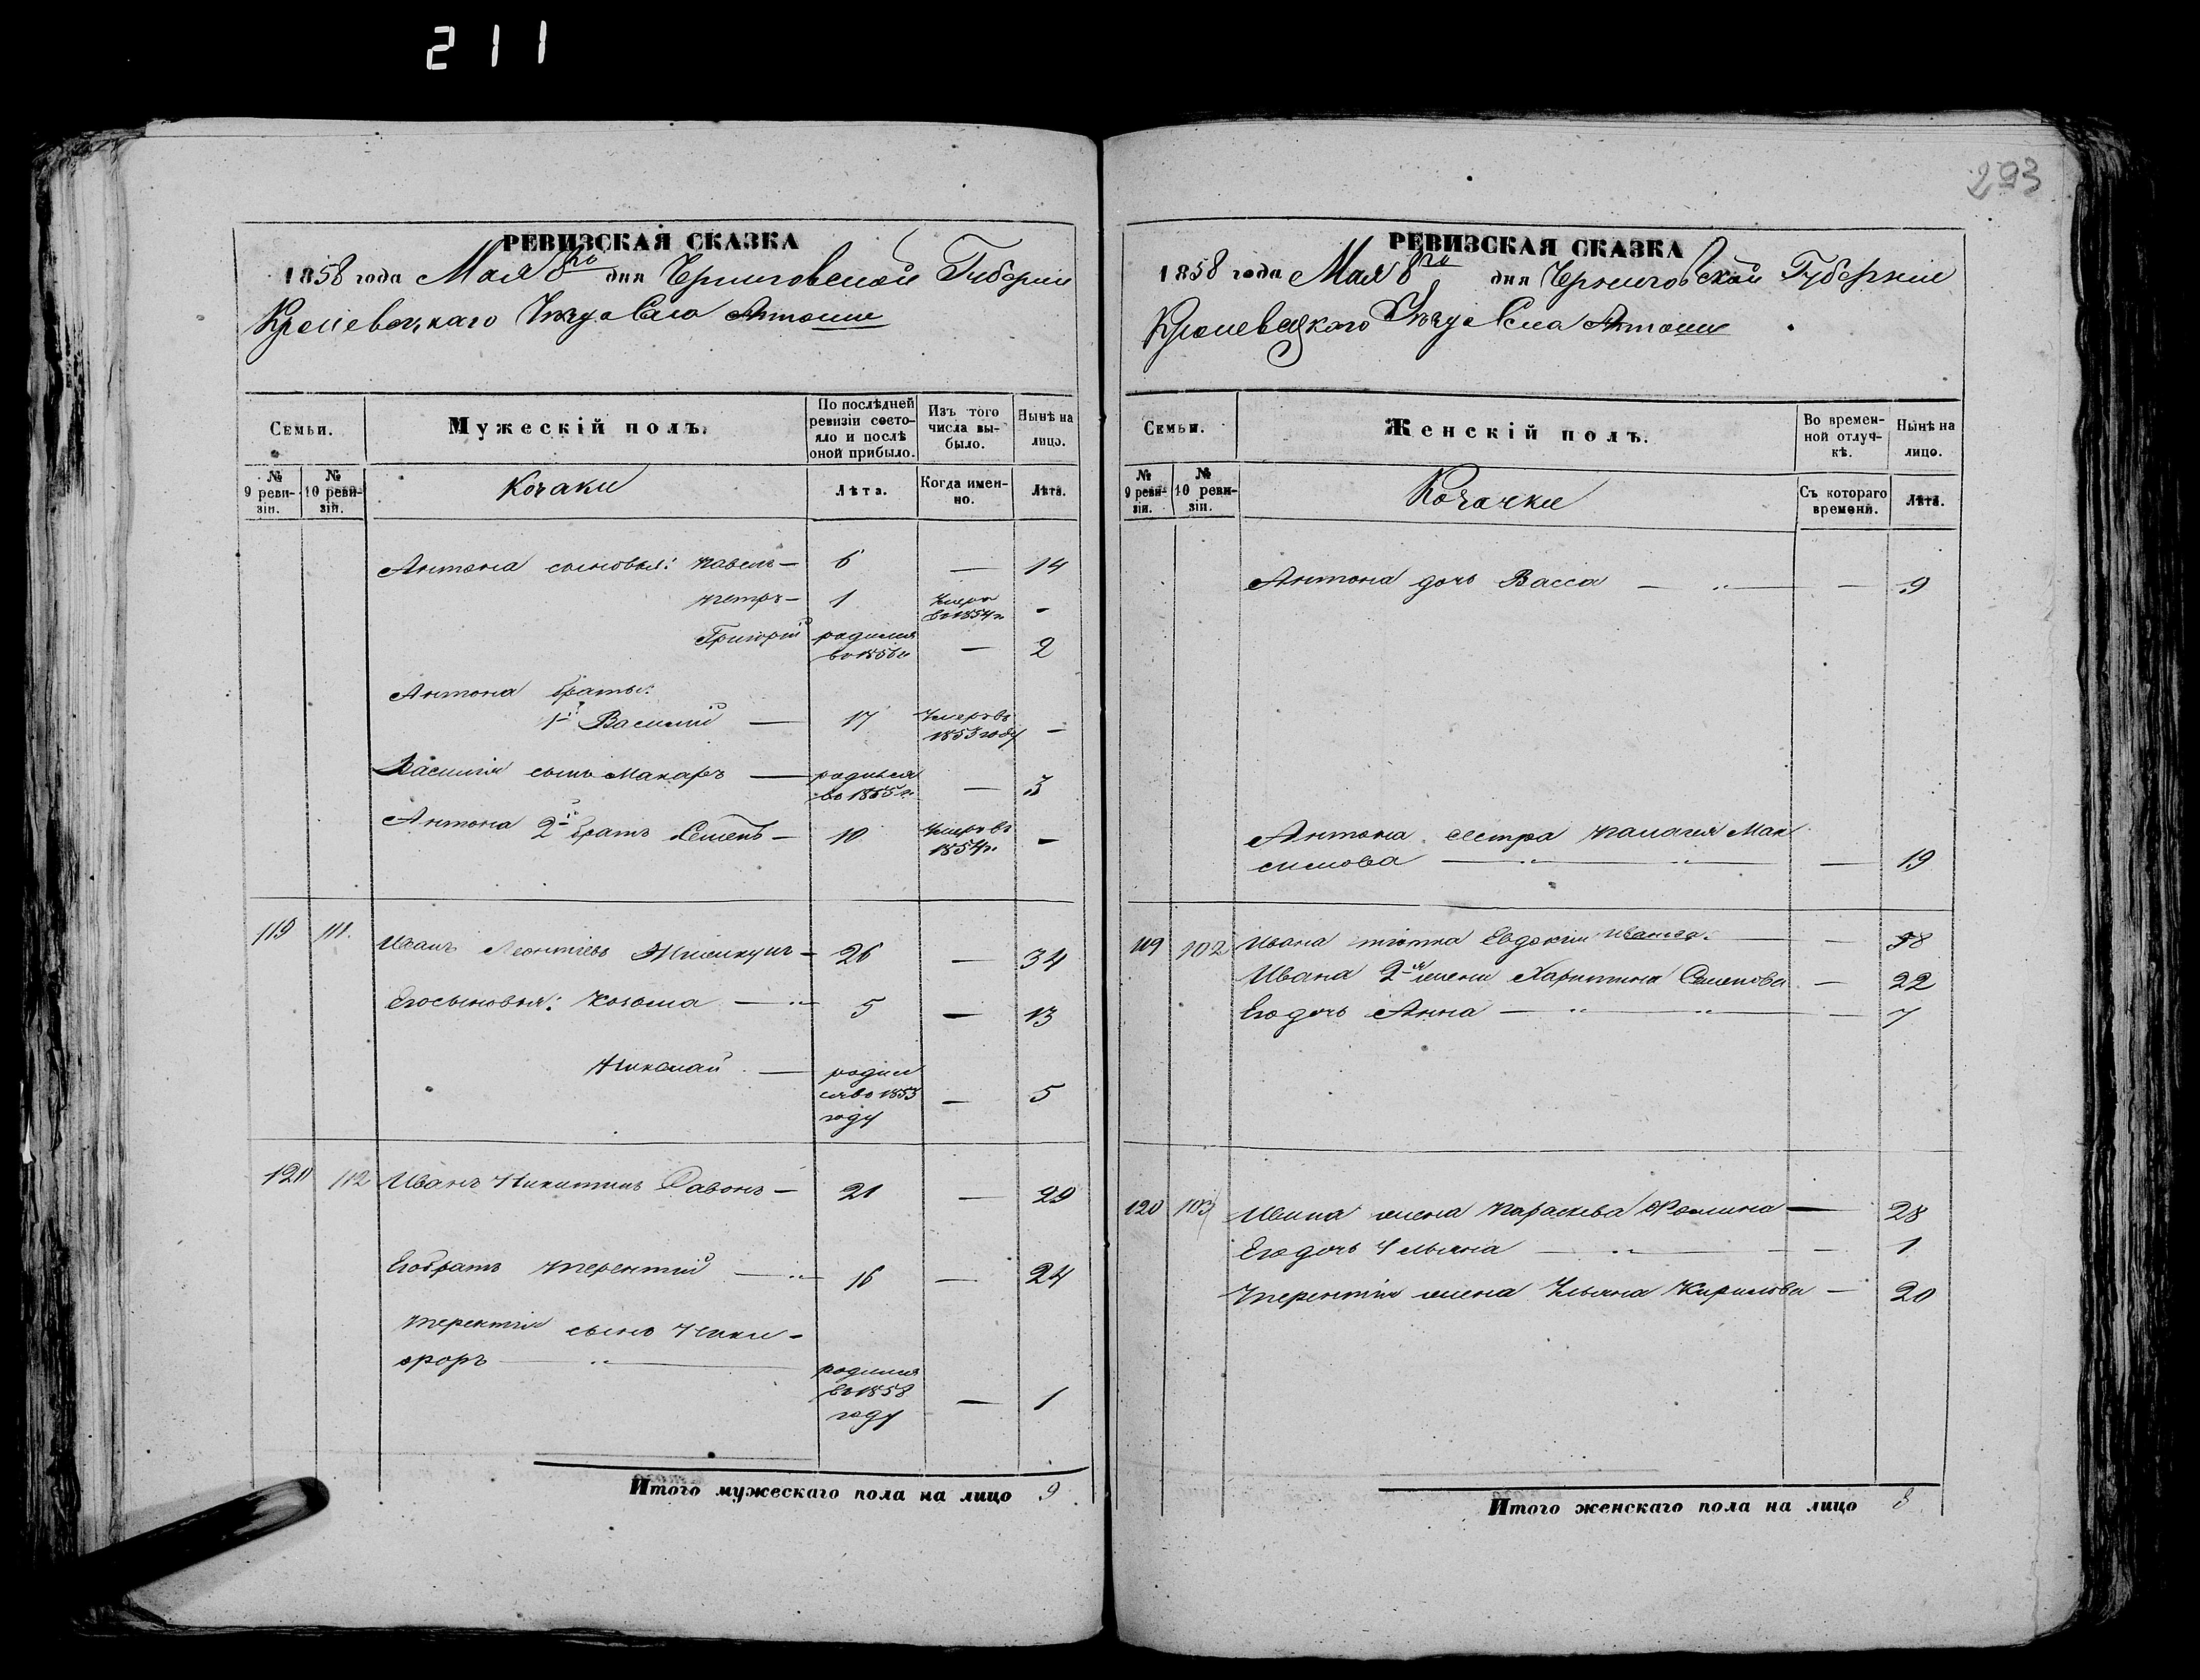 211
293
РЕВИЗСКАЯ СКАЗКА
1858 года Мая 8го дня Черниговской Губерніи
Кролевецкаго Уезда Села
Семьи.
Мужескій полъ.
По послѣдней ревизіи состояло и послѣ оной прибыло.
Изъ того числа выбыло.
Нынѣ на лицо.
№ 9 ревизіи.
№ 10 ревизіи.
Козаки
Лѣта.
Когда именно.
Лѣта.
Антона сыновья: Павелъ — 6 — 14
Петръ — 1 Умеръ въ 1854 г. —
Григорій родился въ 1856 г. — 2
Антона братья:
1й Василій — 17 Умеръ въ 1853 году —
Василія сынъ Макаръ — родился въ 1855 г. — 3
Антона 2й братъ Семенъ — 10 Умеръ въ 1854 г. —
119 111 Иванъ Леонтіевъ — 26 — 34
Его сыновья: Козьма — 5 — 13
Николай — родился въ 1853 году — 5
120 112 Иванъ Никитинъ — 21 — 29
Его братъ Терентій — 16 — 24
Терентія сынъ Ники-
форъ — родился въ 1858 году — 1
Итого мужескаго пола на лицо 9
РЕВИЗСКАЯ СКАЗКА
1858 года Мая 8го дня Черниговской Губерніи
Кролевецкаго Уезда Села
Семьи.
Женскій полъ.
Во временной отлучкѣ.
Нынѣ на лицо.
№ 9 ревизіи.
№ 10 ревизіи.
Козачки
Съ котораго времени.
Лѣта.
Антона дочь Васса — — 9
Антона сестра Палагея Мак
симова — — 19
119 102 Ивана Евдокія Иванова — 58
Ивана 2я жена Харитина Семенова — 22
Его дочь Анна — — 7
120 103 Ивана жена Параскева Фомина — 28
Его дочь Ульяна — — 1
Терентія жена Ульяна Кирилова — 20
Итого женскаго пола на лицо 8